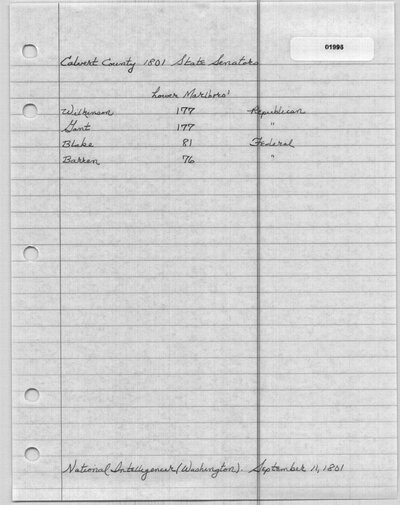 01996
Calvert County 1801 State Senators
Lower Marlboro'
Wilkinson 177 Republican
Gant 177 "
Blake 81 Federal
Barren 76 "
National Intelligencer (Washington). September 11, 1801